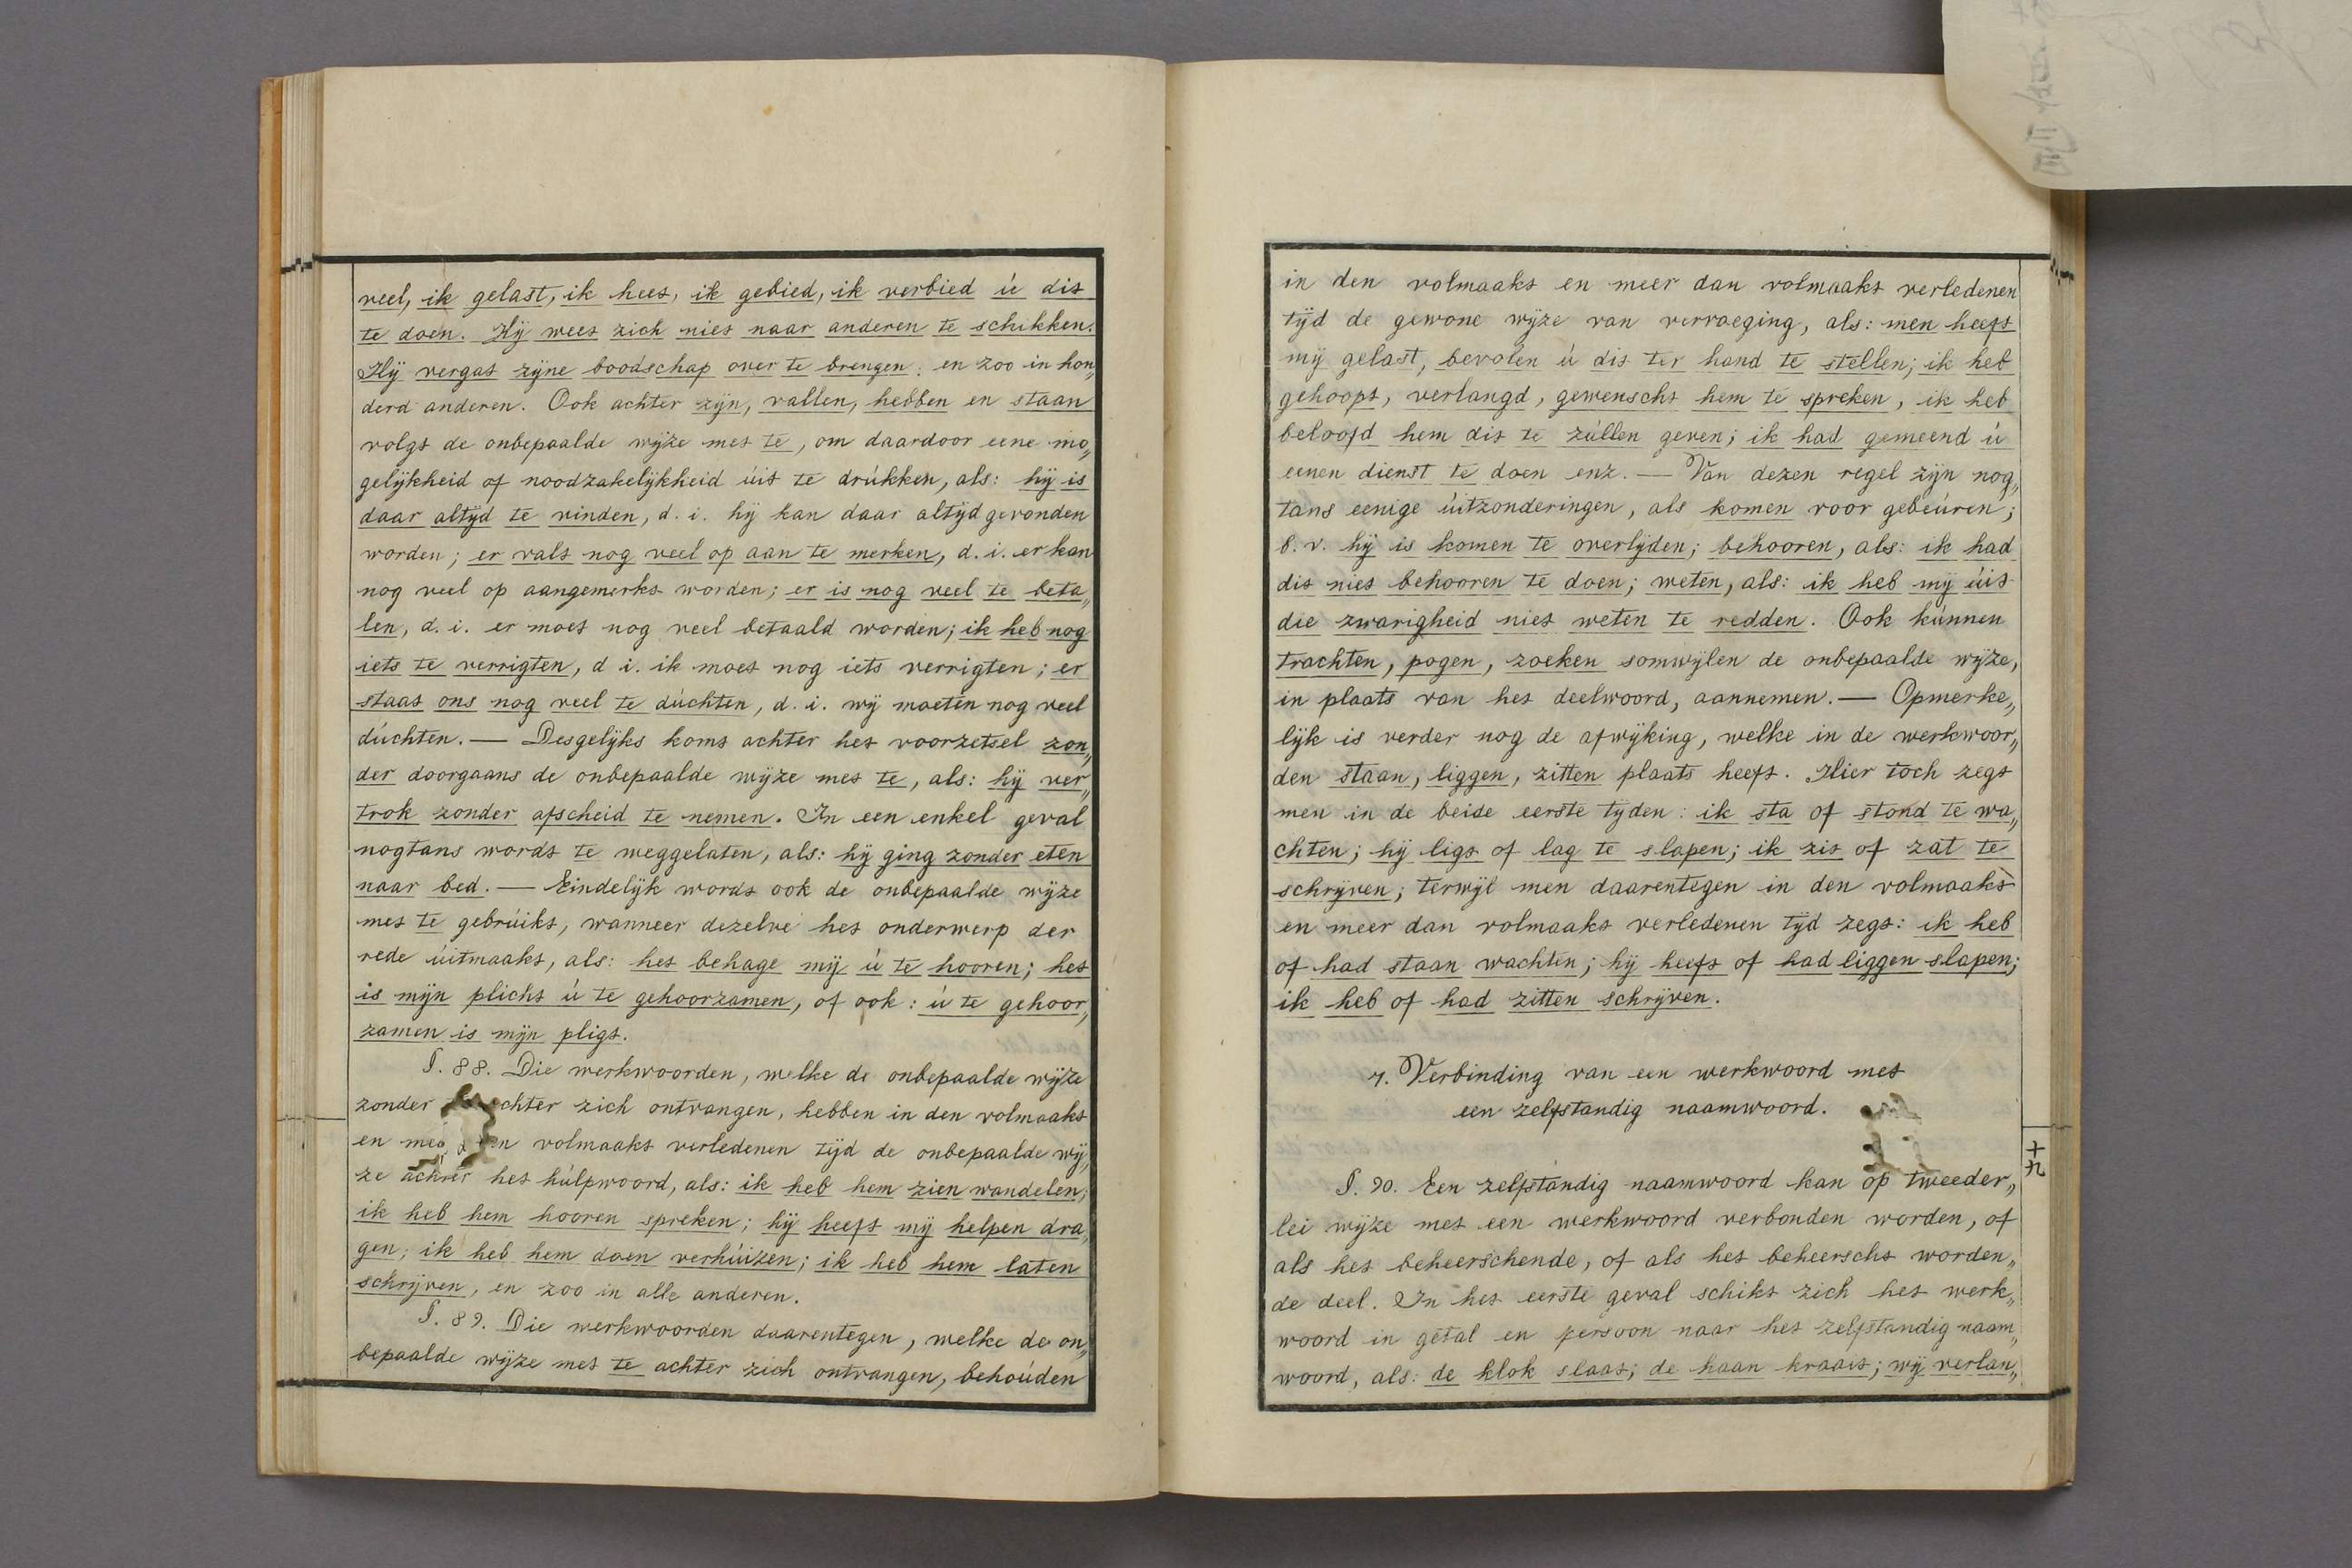 veel, ik gelast, ik heet, ik gebied, ik verbied ú dit
te doen. Hij weet zich niet naar anderen te schikken.
Hij vergat zijne boodschap over te brengen; en zoo in hon„
derd anderen. Ook achter zijn, vallen, hebben en staan
volgt de onbepaalde wijze met te, om daardoor eene mo„
gelijkheid of noodzakelijkheid úit te drúkken, als: hij is
daar altijd te vinden, d. i. hij kan daar altijd gevonden
worden; er valt nog veel op aan te merken, d. i. er kan
nog veel op aangemerkt worden; er is nog veel te beta„
len, d. i. er moet nog veel betaald worden; ik heb nog
iets te verrigten, d i. ik moet nog iets verrigten; er
staat ons nog veel te dúchten, d. i. wij moeten nog veel
dúchten. — Desgelijks komt achter het voorzetsel zon„
der doorgaans de onbepaalde wijze met te, als: hij ver„
trok zonder afscheid te nemen. In een enkel geval
nogtans wordt te weggelaten, als: hij ging zonder eten
naar bed. — Eindelijk wordt ook de onbepaalde wijze
met te gebrúikt, wanneer dezelve het onderwerp der
rede úitmaakt, als: het behage mij ú te hooren; het
is mijn plicht ú te gehoorzamen, of ook: ú te gehoor„
zamen is mijn pligt.
§. 88. Die werkwoorden, welke de onbepaalde wijze
zonder achter zich ontvangen, hebben in den volmaakt
en volmaakt verledenen tijd de onbepaalde wij„
ze achter het húlpwoord, als: ik heb hem zien wandelen;
ik heb hem hooren spreken; hij heeft mij helpen dra„
gen; ik heb hem doen verhúizen; ik heb hem laten
schrijven, en zoo in alle anderen.
§. 89. Die werkwoorden daarentegen, welke de on„
bepaalde wijze met te achter zich ontvangen, behoúden
in den volmaakt en meer dan volmaakt verledenen
tijd de gewone wijze van vervoeging, als: men heeft
mij gelast, bevolen ú dit ter hand te stellen; ik heb
gehoopt, verlangd, gewenscht hem te spreken, ik heb
beloofd hem dit te zúllen geven; ik had gemeend ú
eenen dienst te doen enz. — Van dezen regel zijn nog„
tans eenige úitzonderingen, als komen voor gebeúren;
b. v. hij is komen te overlijden; behooren, als: ik had
dit niet behooren te doen; weten, als: ik heb mij úit
die zwarigheid niet weten te redden. Ook kúnnen
trachten, pogen, zoeken somwijlen de onbepaalde wijze,
in plaats van het deelwoord, aannemen. — Opmerke„
lijk is verder nog de afwijking, welke in de werkwoor„
den staan, liggen, zitten plaats heeft. Hier toch zegt
men in de beide eerste tijden: ik sta of stond te wa„
chten; hij ligt of lag te slapen; ik zit of zat te
schrijven; terwijl men daarentegen in den volmaakt
en meer dan volmaakt verledenen tijd zegt: ik heb
of had staan wachten; hij heeft of had liggen slapen;
ik heb of had zitten schrijven.
7. Verbinding van een werkwoord met
een zelfstandig naamwoord.
§. 90. Een zelfstandig naamwoord kan op tweeder„
lei wijze met een werkwoord verbonden worden, of
als het beheerschende, of als het beheerscht worden„
de deel. In het eerste geval schikt zich het werk„
woord in getal en persoon naar het zelfstandig naam„
woord, als: de klok slaat; de haan kraait; wij verlan„
七十